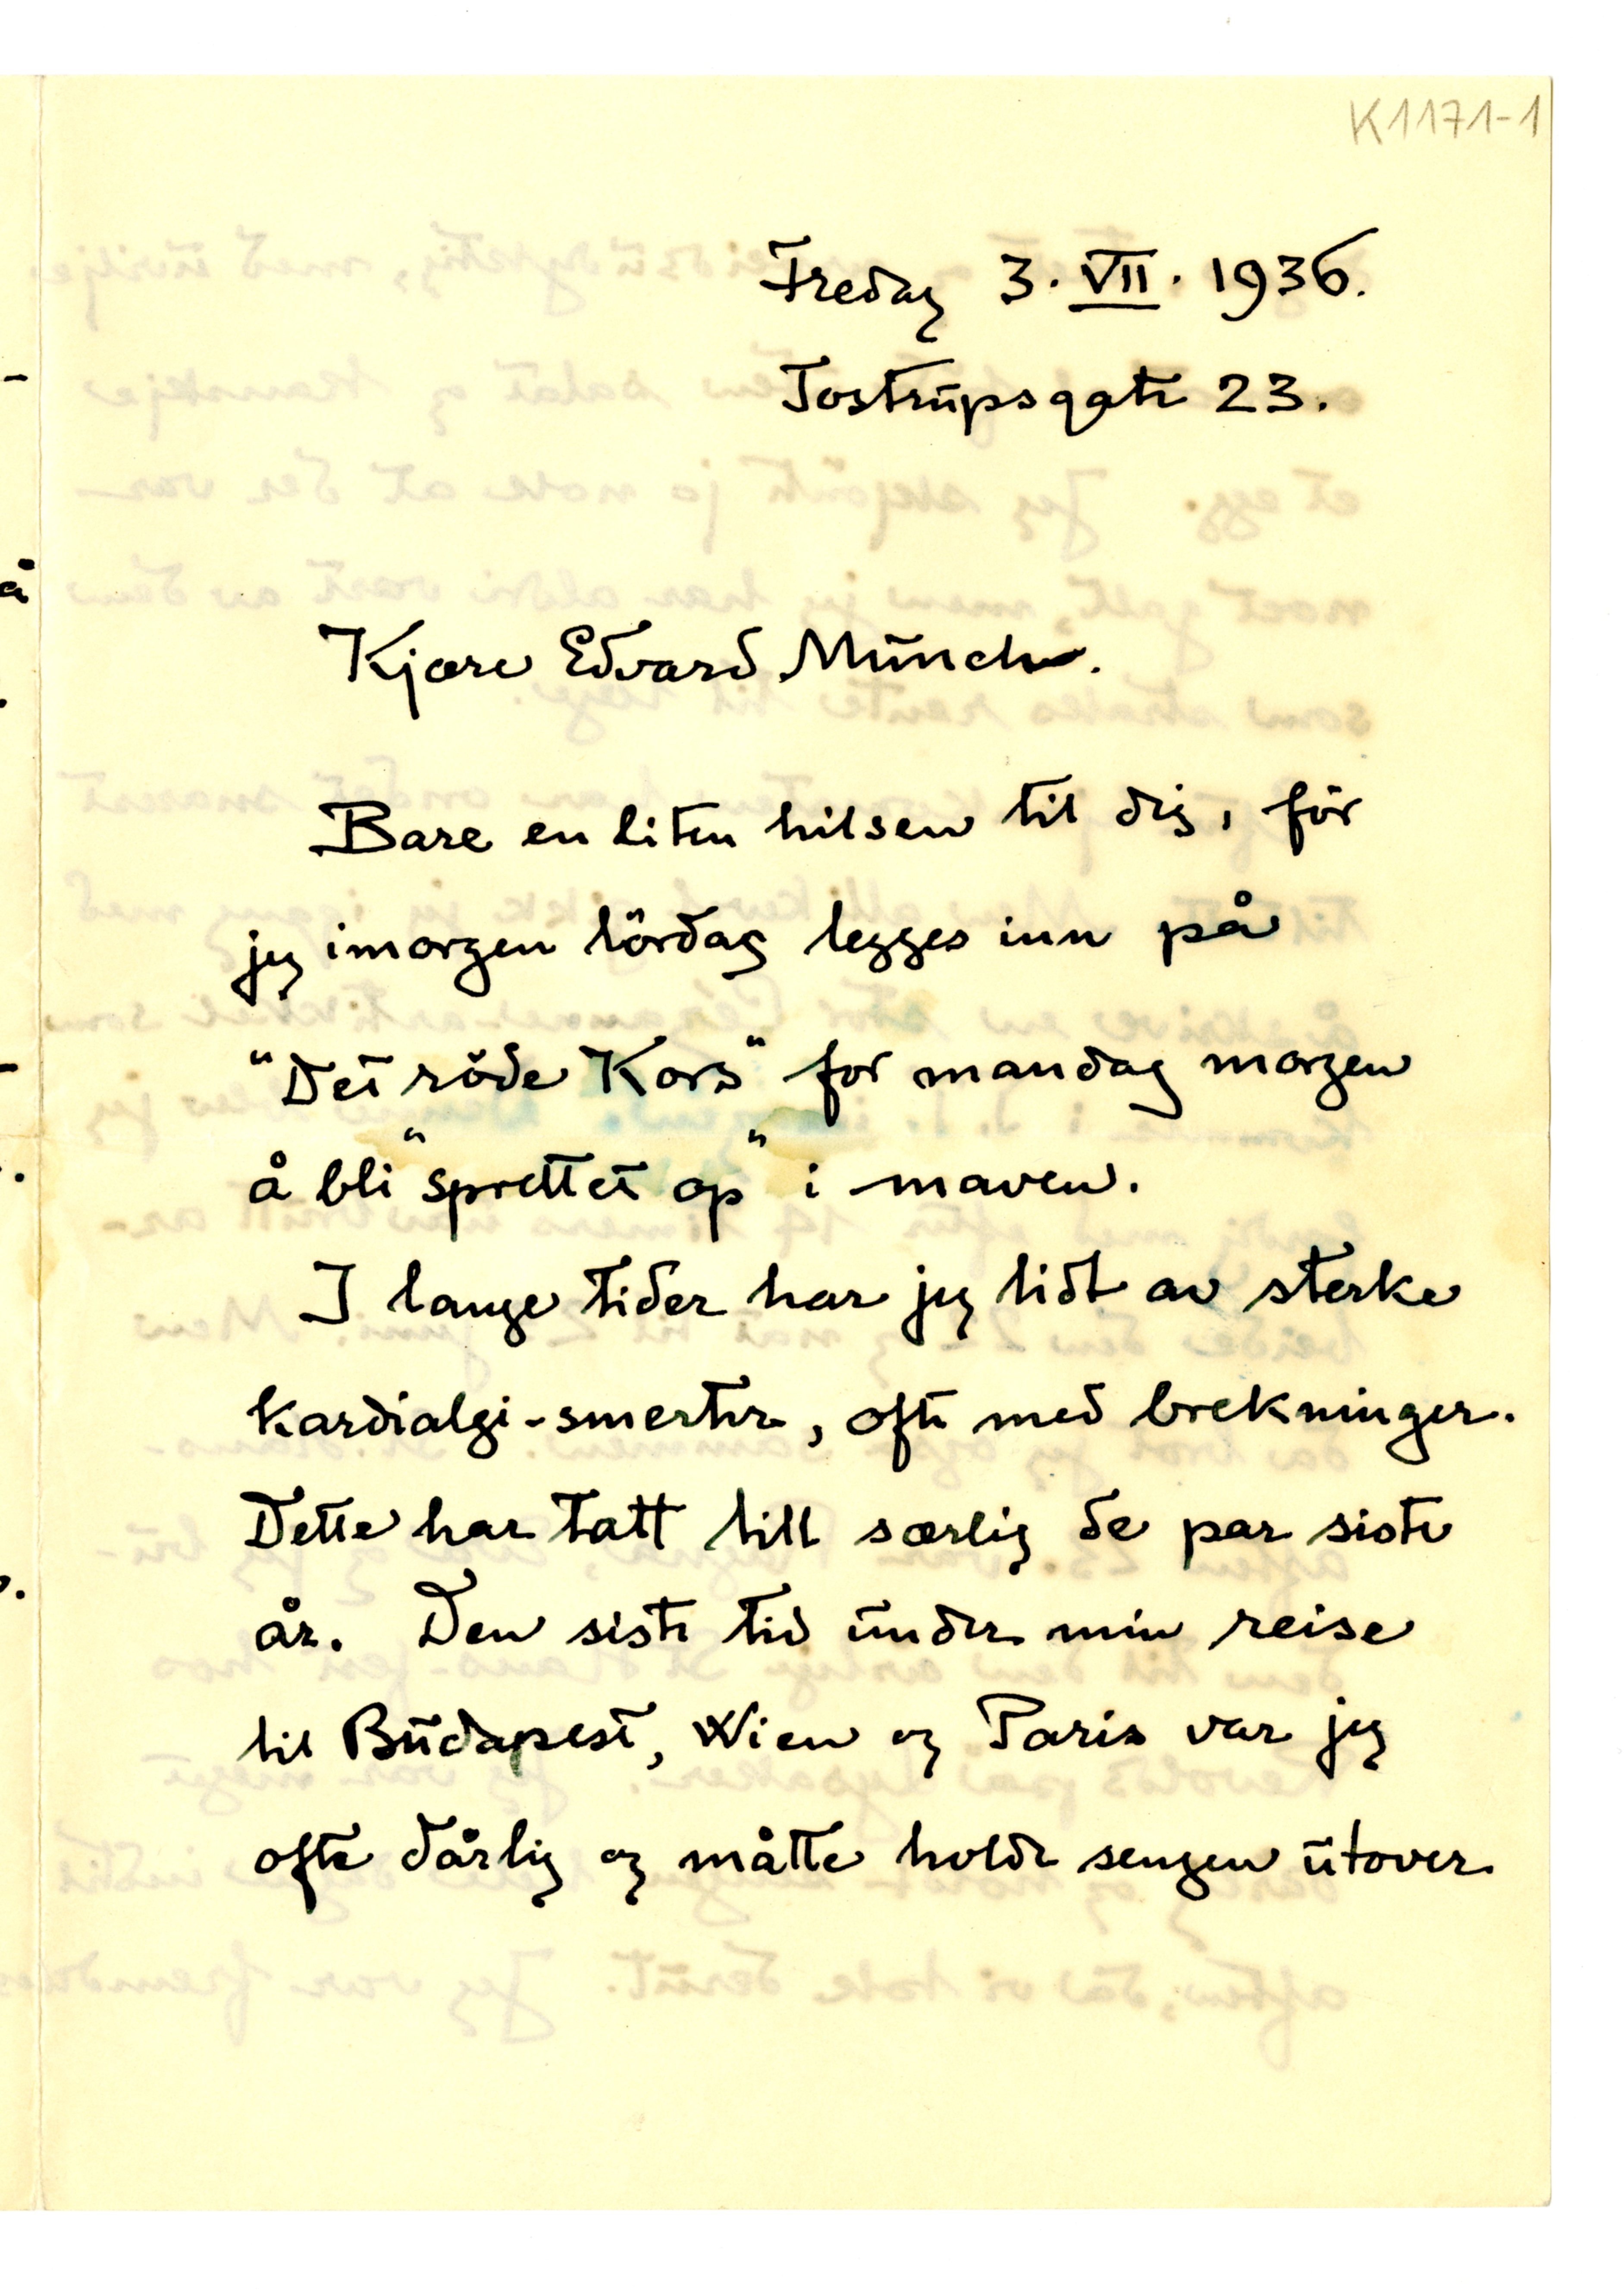 K1171-1
Fredag 3. VII. 1936.
Tostrüpsgate 23.
Kjære Edvard Münch.
Bare en liten hilsen til dig, för
jeg imorgen lördag legges inn på
"Det röde Kors" for mandag morgen
å bli "sprettet op" i maven.
I lange tider har jeg lidt av sterke
kardialgi-smerter, ofte med brekninger.
Dette har tatt till særlig de par siste
år. Den siste tid ünder min reise
til Büdapest, Wien og Paris var jeg
ofte dårlig og måtte holde sengen ütover